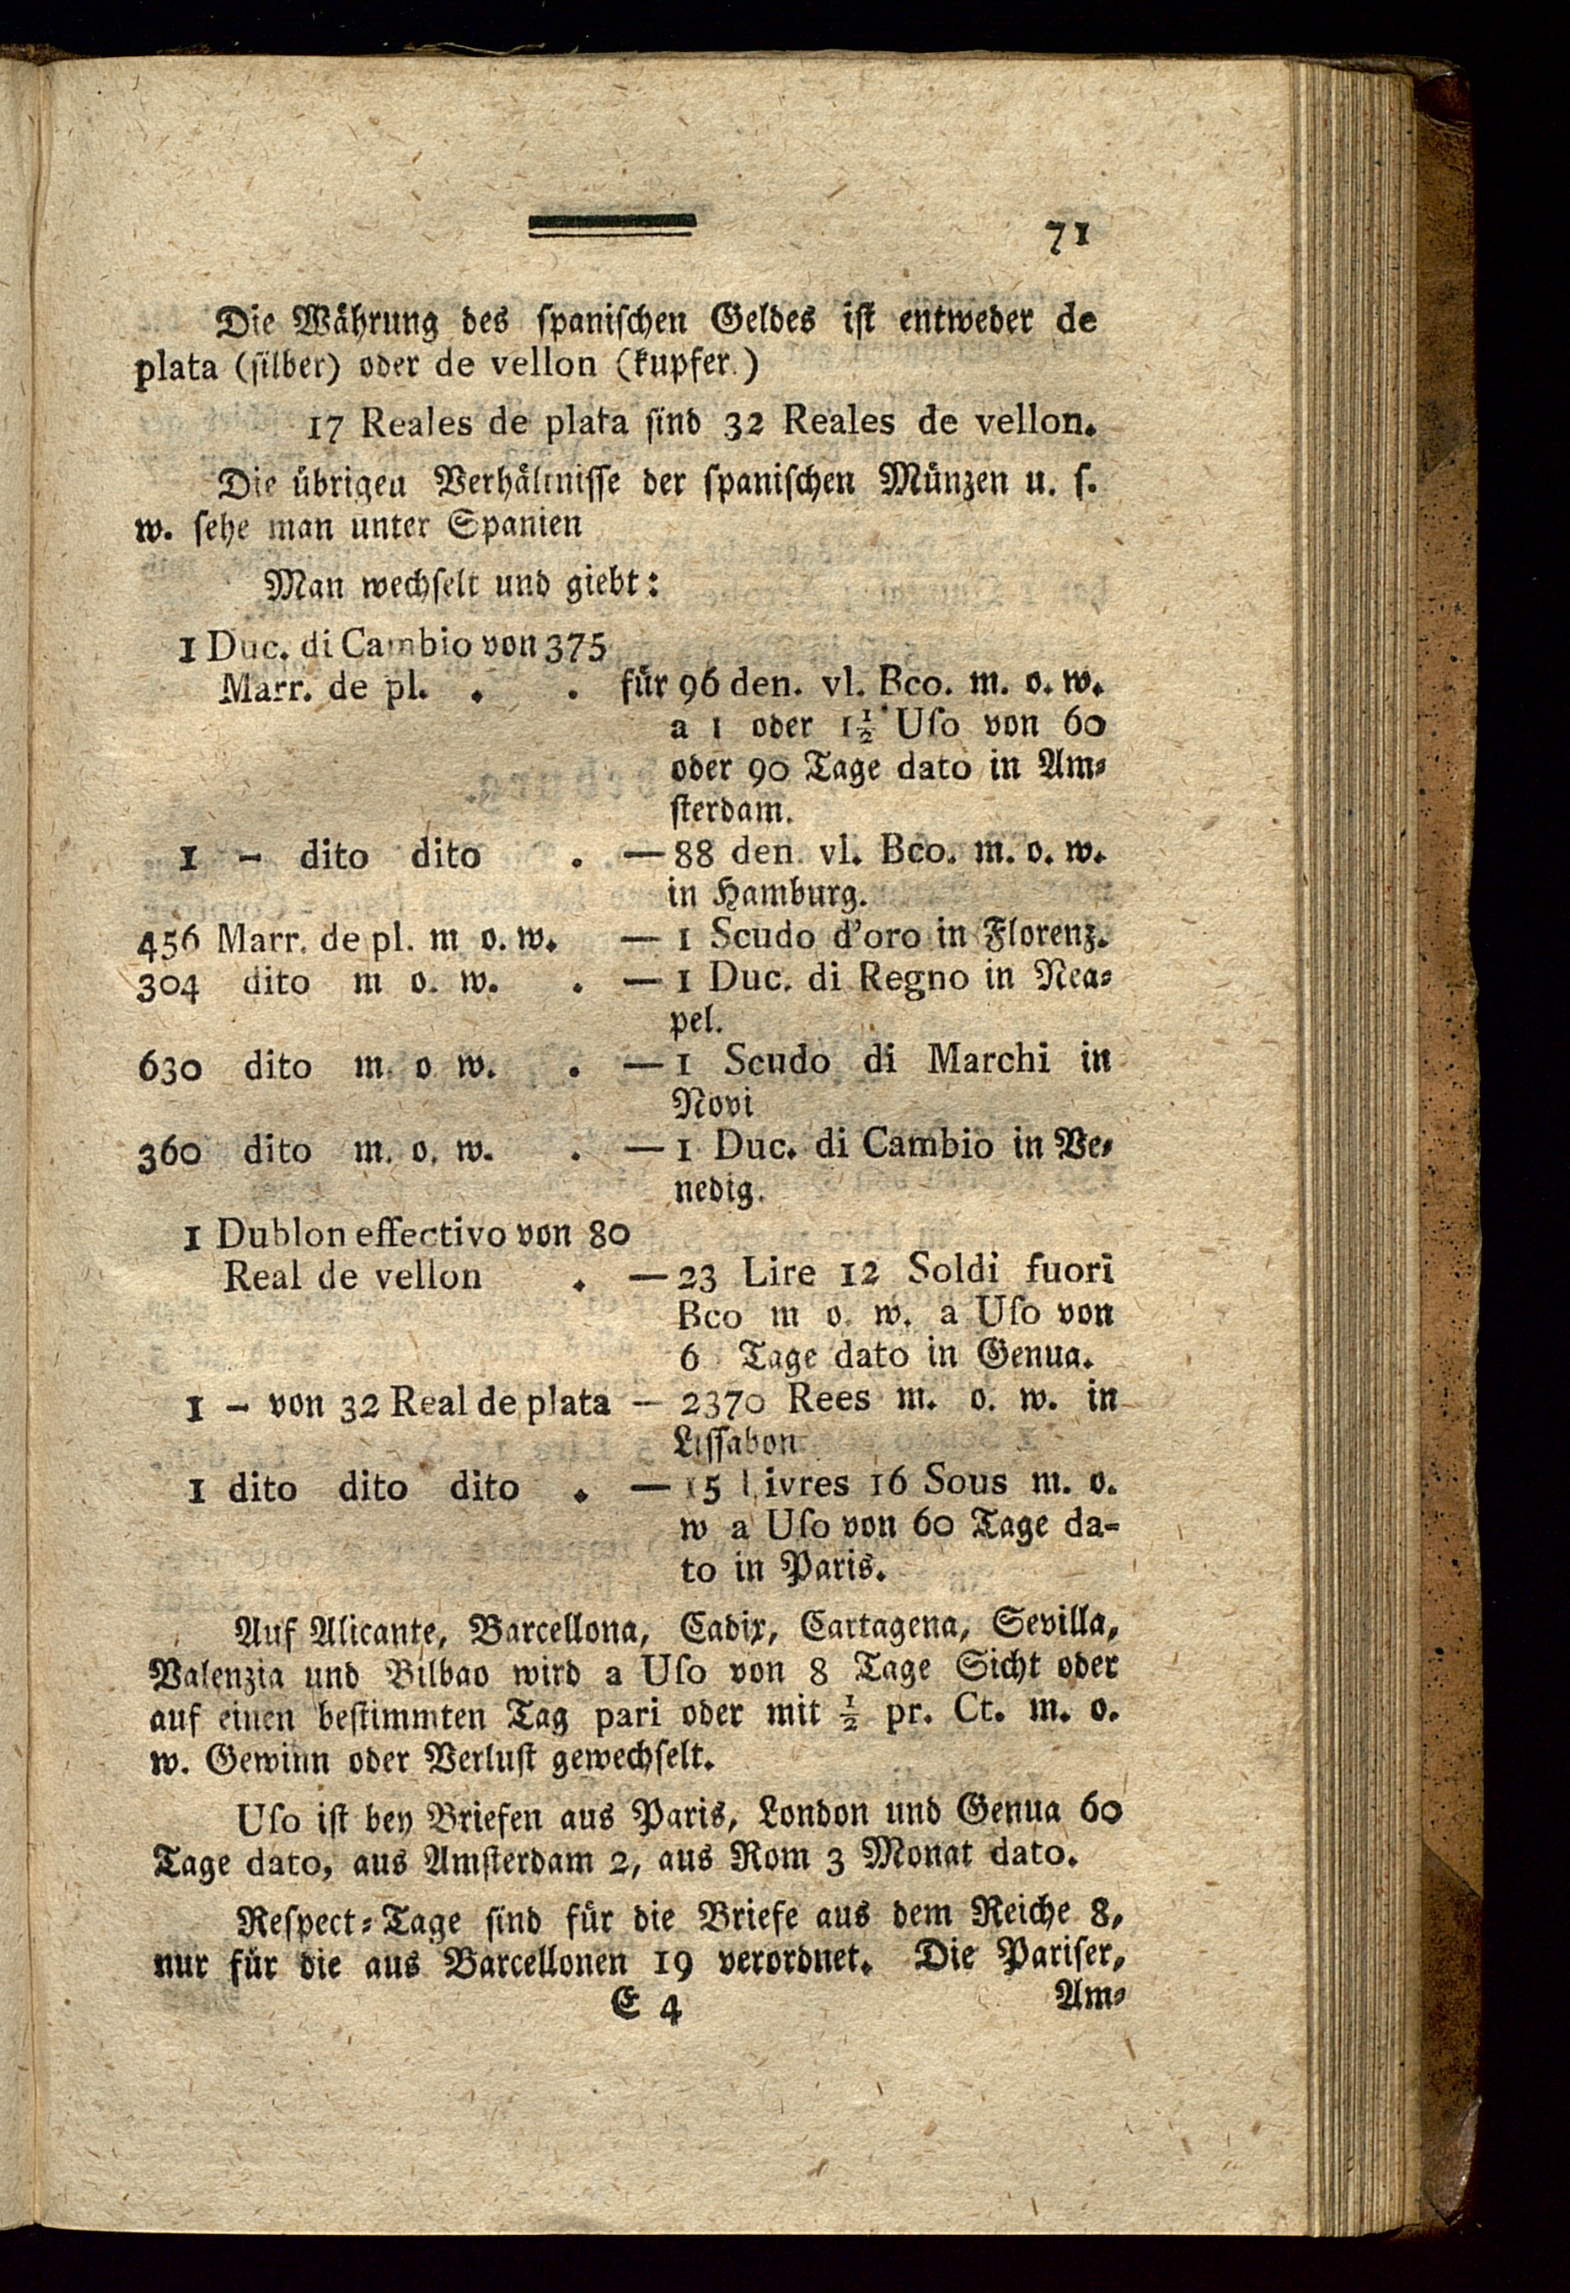 71
Die Währung des spanischen Geldes ist entweder de
plata (silber) oder de vellon (kupfer.)
17 Reales de plata sind 32 Reales de vellon.
Die übrigen Verhältnisse der spanischen Münzen u. s.
w. sehe man unter Spanien
Man wechselt und giebt:
1 Duc. di Cambio von 375
Marr. de pl. . . für 96 den. vl. Bco. m. o. w.
a 1 oder 1½ Uso von 60
oder 90 Tage dato in Am-
sterdam.
1 - dito dito . — 88 den. vl. Bco. m. o. w.
in Hamburg.
456 Marr. de pl. m o. w. — 1 Scudo d'oro in Florenz.
304 dito m o. w. . — 1 Duc. di Regno in Nea-
pel.
630 dito m. o w. . — 1 Scudo di Marchi in
Novi
360 dito m. o. w. . — 1 Duc. di Cambio in Ve-
nedig.
1 Dublon effectivo von 80
Real de vellon . — 23 Lire 12 Soldi fuori
Bco m o. w. a Uso von
6 Tage dato in Genua.
1 - von 32 Real de plata — 2370 Rees m. o. w. in
Lissabon
1 dito dito dito . — 15 Livres 16 Sous m. o.
w a Uso von 60 Tage da-
to in Paris.
Auf Alicante, Barcellona, Cadix, Cartagena, Sevilla,
Valenzia und Bilbao wird a Uso von 8 Tage Sicht oder
auf einen bestimmten Tag pari oder mit ½ pr. Ct. m. o.
w. Gewinn oder Verlust gewechselt.
Uso ist bey Briefen aus Paris, London und Genua 60
Tage dato, aus Amsterdam 2, aus Rom 3 Monat dato.
Respect-Tage sind für die Briefe aus dem Reiche 8,
nur für die aus Barcellonen 19 verordnet. Die Pariser,
E 4 Am-